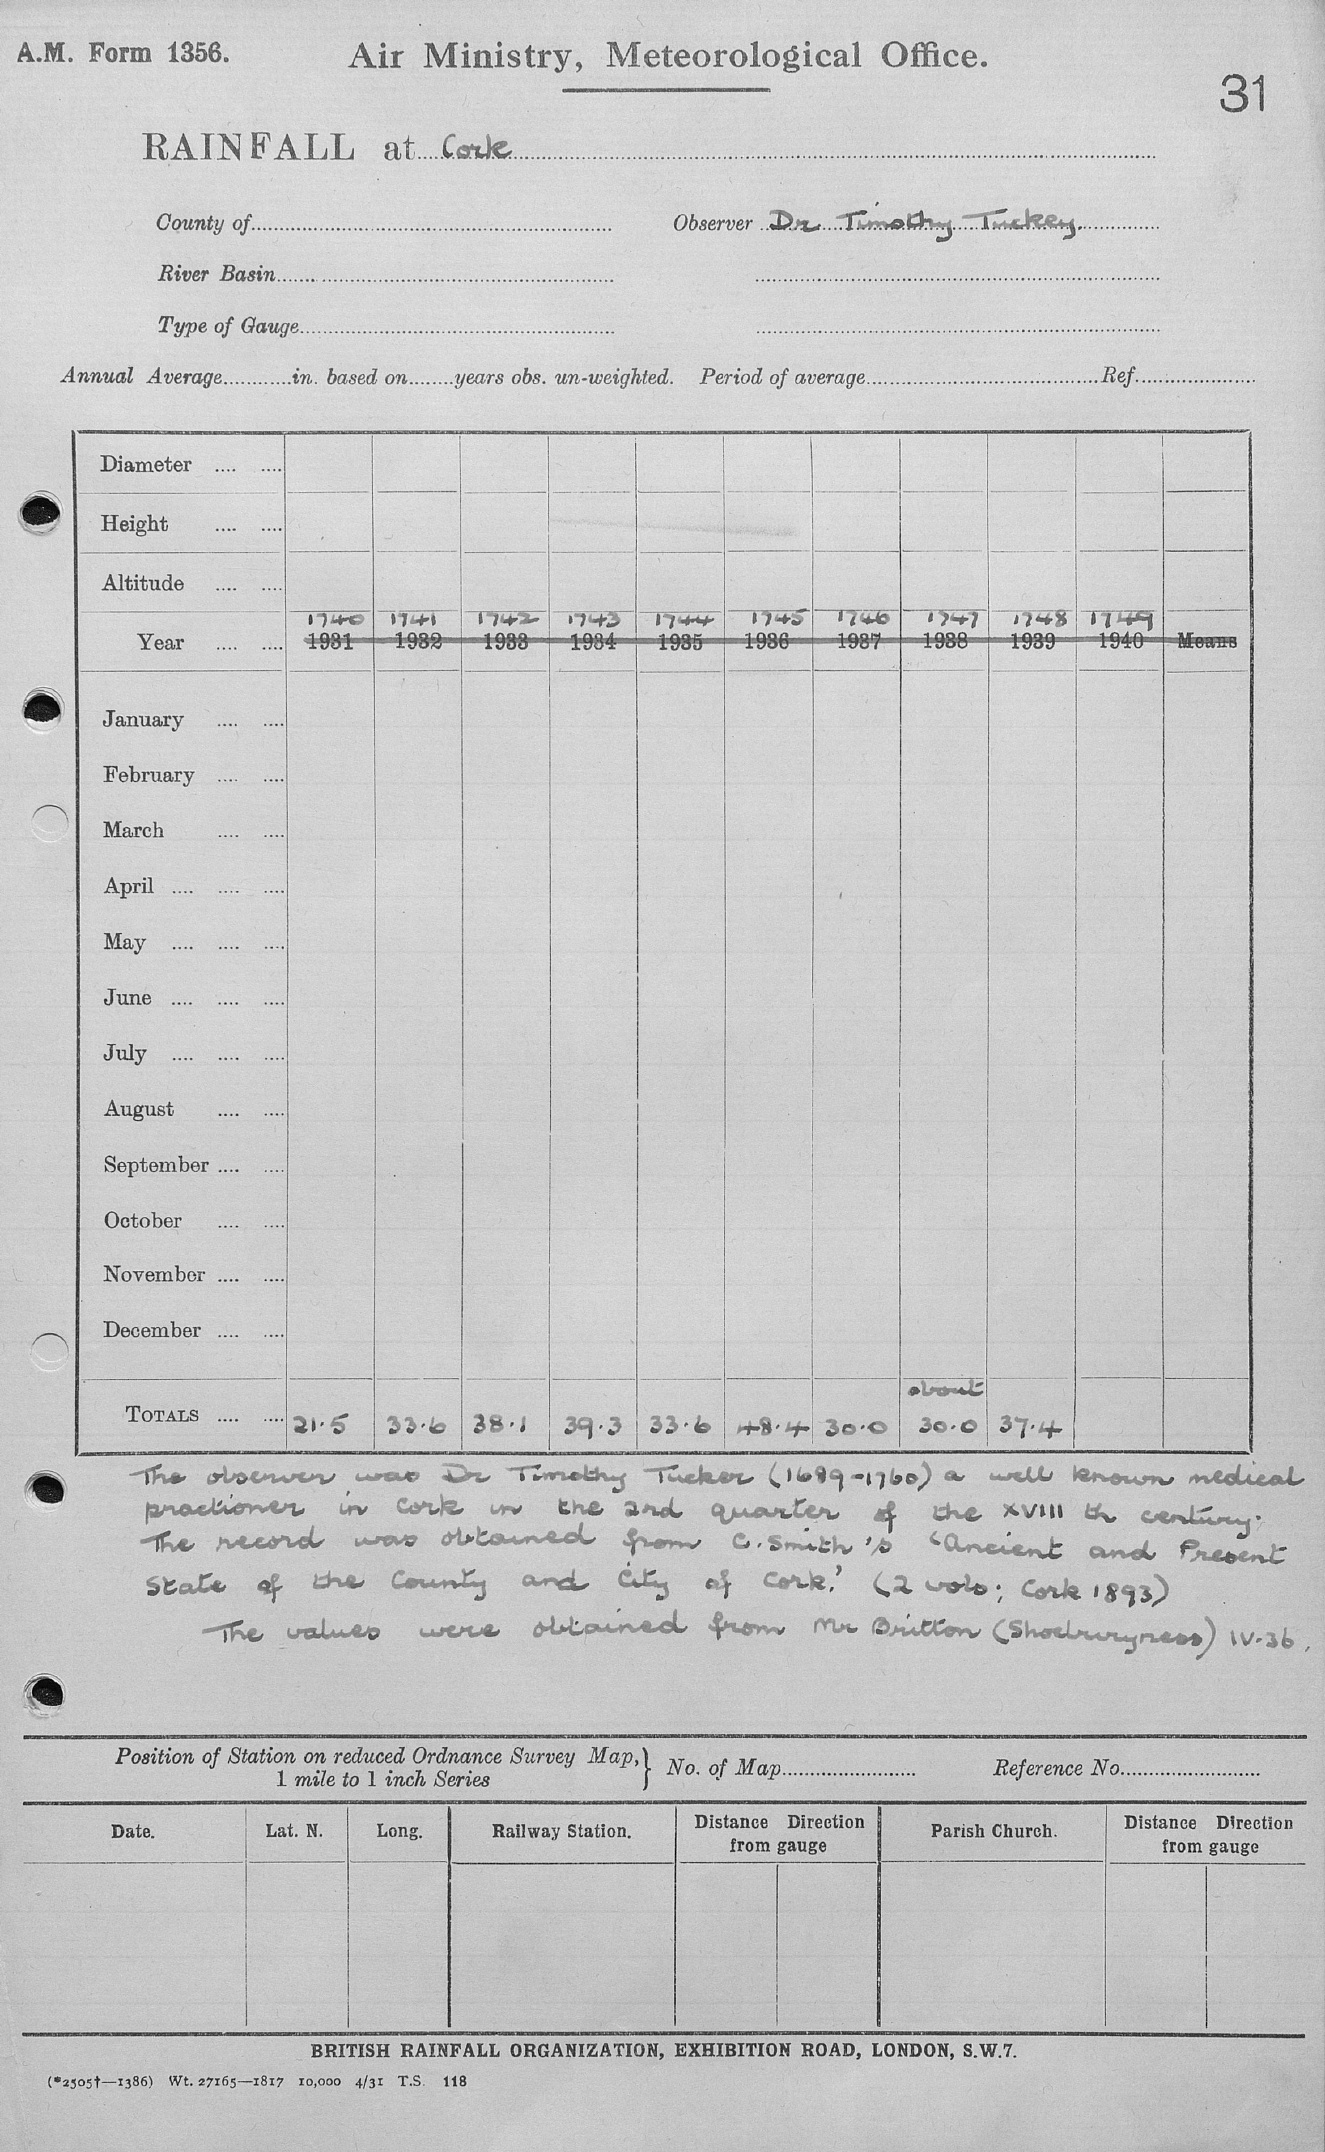 A.M. Form 1356.
Air Ministry, Meteorological Office.
31
RAINFALL at Cork
County of
Observer Dr Timothy Tuckey.
River Basin
Type of Gauge
Annual Average in. based on years obs. un-weighted. Period of average Ref.
Diameter
Height
Altitude
1740 1741 1742 1743 1744 1745 1746 1747 1748 1749
Year 1931 1932 1933 1934 1935 1936 1937 1938 1939 1940 Means
January
February
March
April
May
June
July
August
September
October
November
December
about
TOTALS 21.5 33.6 38.1 39.3 33.6 48.4 30.0 30.0 37.4
The observer was Dr Timothy Tucker (1689-1760) a well known medical
practioner in Cork in the 2nd quarter of the XVIII th century.
The record was obtained from C. Smith's 'Ancient and Present
State of the County and City of Cork.' (2 vols; Cork 1893)
The values were obtained from Mr Britton (Shoeburyness) IV.36.
Position of Station on reduced Ordnance Survey Map,} No. of Map Reference No.
1 mile to 1 inch Series
Date. Lat. N. Long. Railway Station. Distance Direction from gauge Parish Church. Distance Direction from gauge
BRITISH RAINFALL ORGANIZATION, EXHIBITION ROAD, LONDON, S.W.7.
(*2505†—1386) Wt. 27165—1817 10,000 4/31 T.S. 118